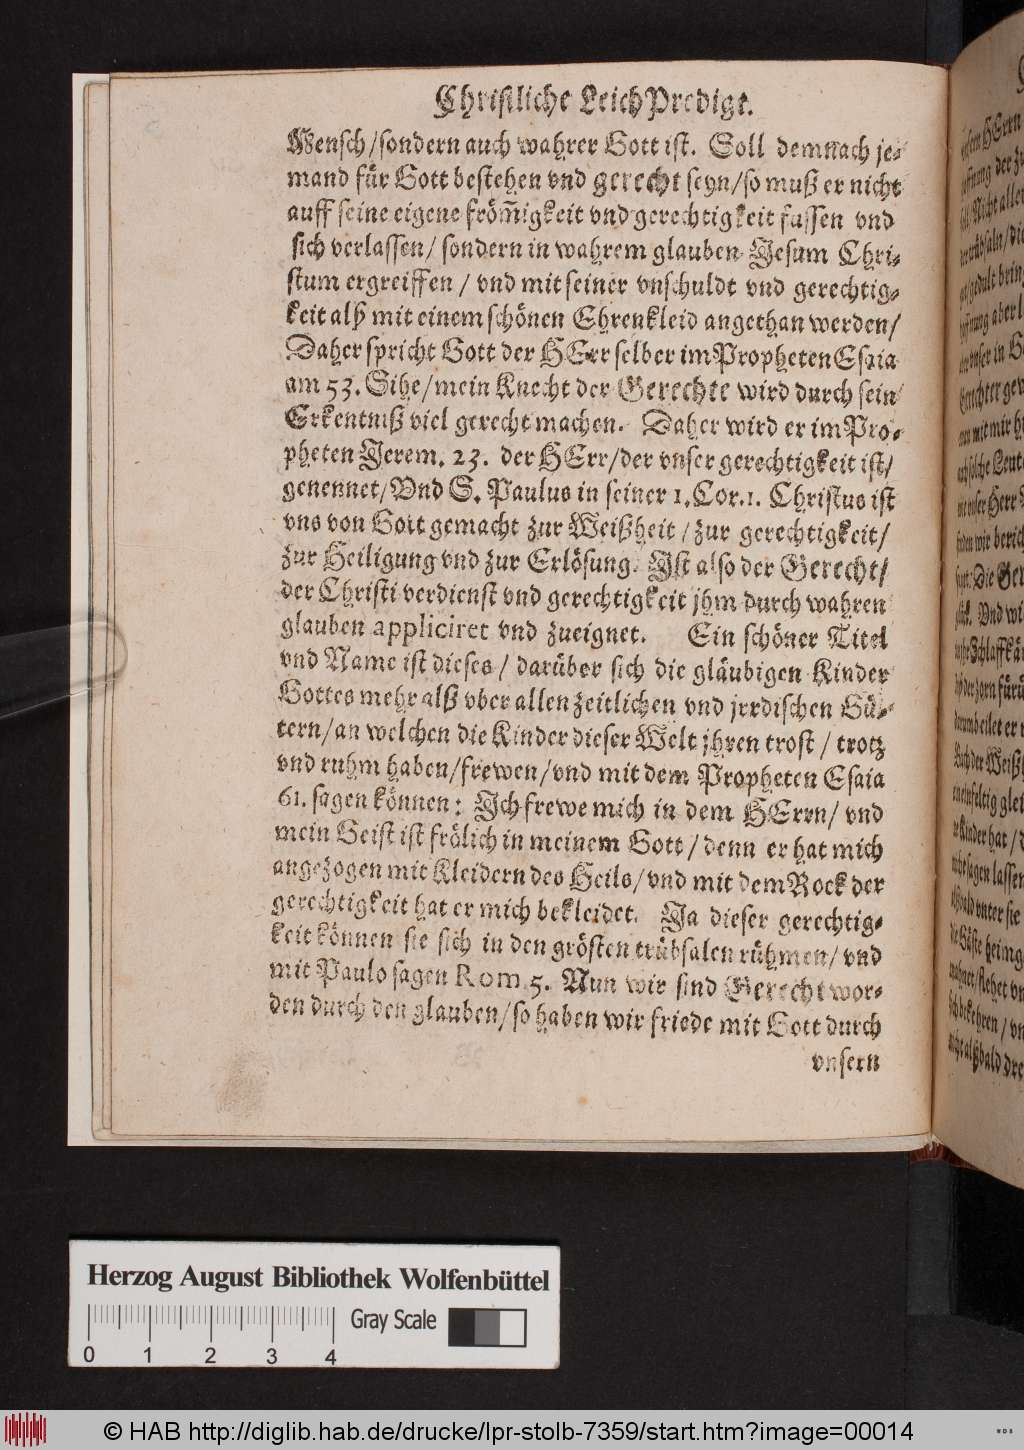 Christliche LeichPredigt.
Mensch/sondern auch wahrer Gott ist. Soll demnach je-
mand für Gott bestehen vnd gerecht seyn/so muß er nicht
auff seine eigene fröm̃igkeit vnd gerechtigkeit fussen vnd
sich verlassen/ sondern in wahrem glauben Jesum Chri-
stum ergreiffen / vnd mit seiner vnschuldt vnd gerechtig-
keit alß mit einem schönen Ehrenkleid angethan werden/
Daher spricht Gott der HErr selber im Propheten Esaia
am 53. Sihe/mein Knecht der Gerechte wird durch sein
Erkentniß viel gerecht machen. Daher wird er im Pro-
pheten Jerem. 23. der HErr/der vnser gerechtigkeit ist/
genennet/Vnd S. Paulus in seiner 1. Cor. 1. Christus ist
vns von Gott gemacht zur Weißheit / zur gerechtigkeit/
zur Heiligung vnd zur Erlösung. Ist also der Gerecht/
der Christi verdienst vnd gerechtigkeit jhm durch wahren
glauben appliciret vnd zueignet. Ein schöner Titel
vnd Name ist dieses / darüber sich die gläubigen Kinder
Gottes mehr alß vber allen zeitlichen vnd jrrdischen Gü-
tern/an welchen die Kinder dieser Welt jhren trost / trotz
vnd ruhm haben/frewen/vnd mit dem Propheten Esaia
61. sagen können: Ich frewe mich in dem HErrn/ vnd
mein Geist ist frölich in meinem Gott / denn er hat mich
angezogen mit Kleidern des Heils/vnd mit dem Rock der
gerechtigkeit hat er mich bekleidet. Ja dieser gerechtig-
keit können sie sich in den grösten trübsalen rühmen/ vnd
mit Paulo sagen Rom. 5. Nun wir sind Gerecht wor-
den durch den glauben/so haben wir friede mit Gott durch
vnsern
Herzog August Bibliothek Wolfenbüttel
0 1 2 3 4
Gray Scale
© HAB http://diglib.hab.de/drucke/lpr-stolb-7359/start.htm?image=00014